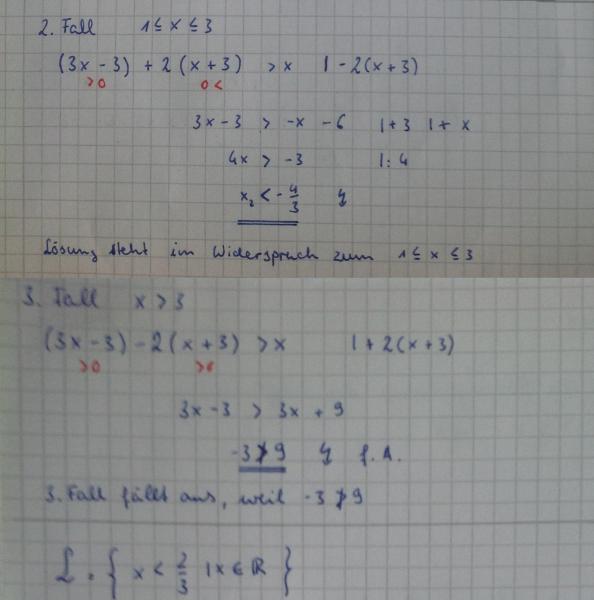 2. Fall 1 ≤ x ≤ 3
(3x - 3) + 2 (x + 3) > x | - 2(x + 3)
>0 0<
3x - 3 > -x - 6 | + 3 | + x
4x > -3 | : 4
x₂ < - 4/3 ↯
Lösung steht im Widerspruch zum 1 ≤ x ≤ 3
3. Fall x > 3
(3x - 3) - 2(x + 3) > x | + 2(x + 3)
>0 >0
3x - 3 > 3x + 9
-3 ≯ 9 ↯ f.A.
3. Fall fällt aus, weil -3 ≯ 9
L = { x < 2/3 | x ∈ ℝ }